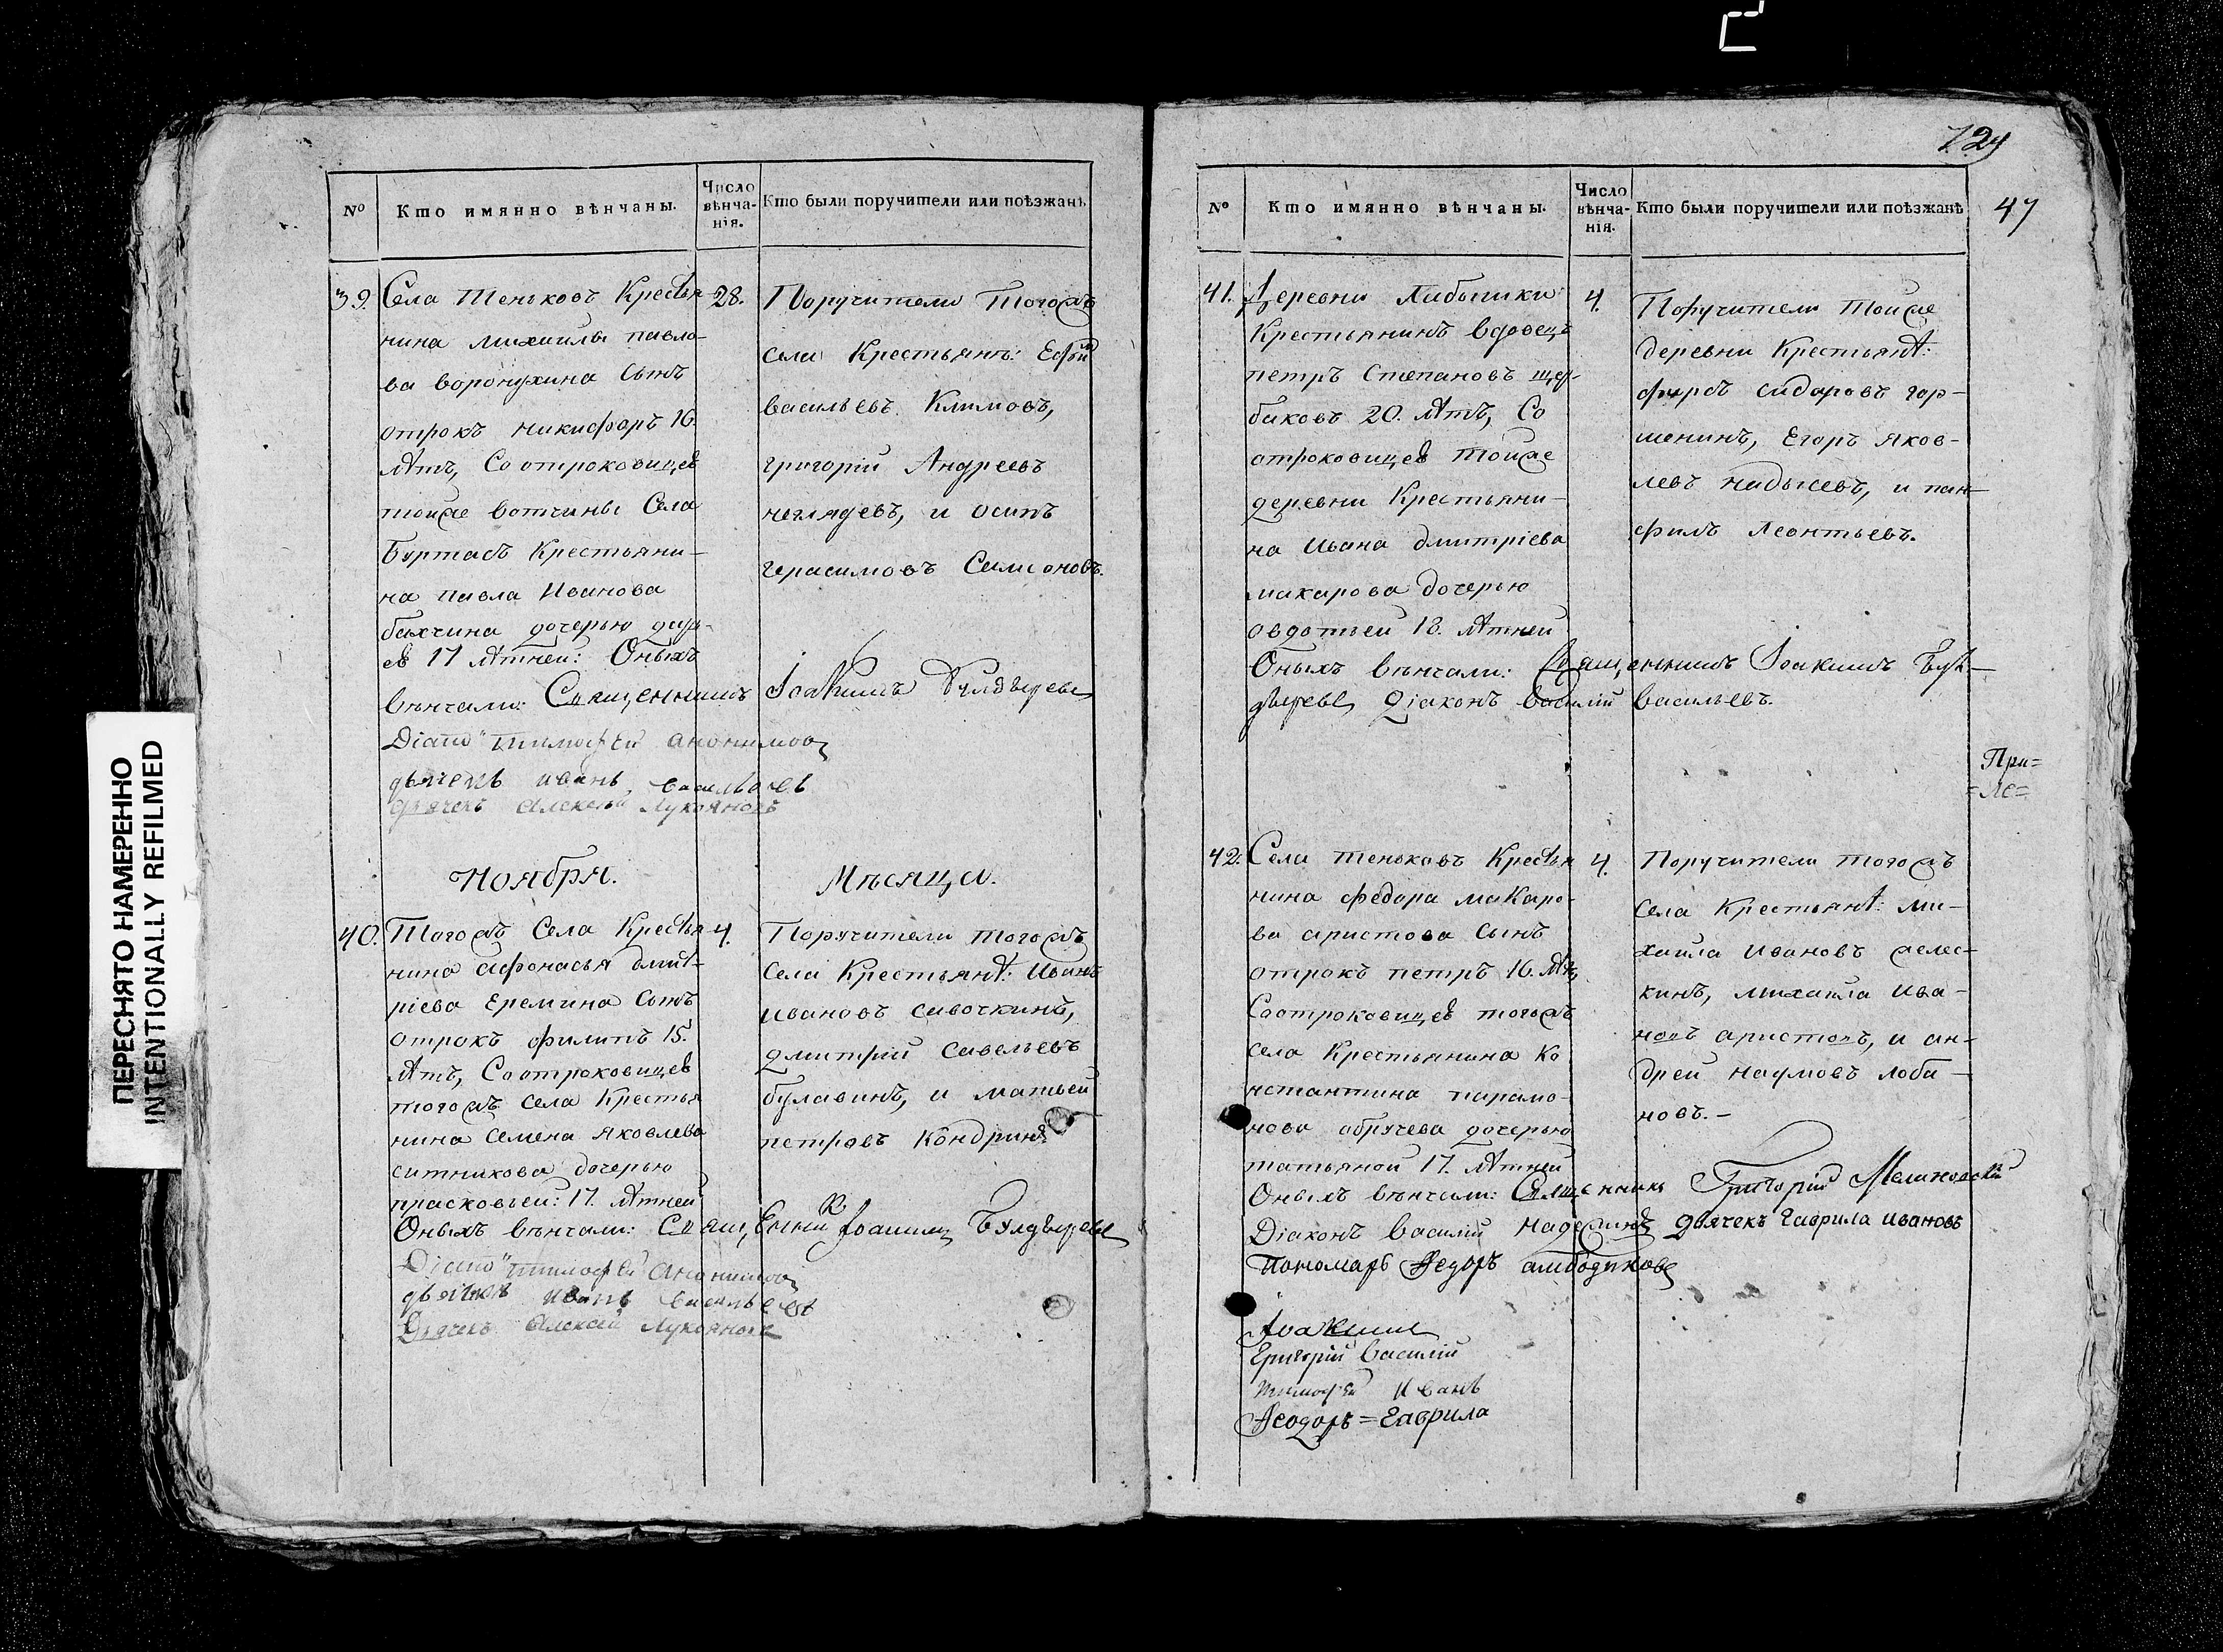 ПЕРЕСНЯТО НАМЕРЕННО
INTENTIONALLY REFILMED
№
Кто имянно вѣнчаны.
Число вѣнча-нія.
Кто были поручители или поѣзжанѣ
39.
Села Теньковъ Крестья
нина михаила павло-
ва воронухина Сынъ
отрокъ никифоръ 16.
лѣтъ, Со отроковицеѣ
тойже вотчины Села
Буртасъ Крестьяни-
на павла Иванова
бахчина дочерью дарь-
еѣ 17 лѣтней: Оныхъ
вѣнчали: Священникъ Іоакимъ
тимофей
дьячекъ иванъ васильевъ
дьячекъ Алексей Лукояновъ
28.
Поручители Тогожъ
села Крестьянѣ:
васильевъ Климовъ,
григорій Андреевъ
неглядевъ, и осипъ
герасимовъ Симоновъ.
Ноября. Мѣсяца.
40.
Тогожъ Села Крестья
нина афонасья дмит-
ріева еремина Сынъ
отрокъ филипъ 15.
лѣтъ, Со отроковицеѣ
тогожъ села Крестья
нина семена яковлева
ситникова дочерью
прасковьей: 17. лѣтней
Оныхъ вѣнчали:
тимофей
дьячекъ иванъ васильевъ
Дьячекъ Алексей Лукояновъ
4.
Поручители тогожъ
села Крестьянѣ: Иванъ
ивановъ савочкинъ,
дмитрий савельевъ
булавинъ, и матвей
петровъ Кондринъ
729
№
Кто имянно вѣнчаны.
Число вѣнча-нія.
Кто были поручители или поѣзжанѣ
47
41.
Деревни
Крестьянинъ вдовецъ
петръ Степановъ щер-
баковъ 20. лѣтъ, Со
отроковицеѣ тойже
деревни Крестьяни-
на Ивана дмитріева
макарова дочерью
овдотьей 18. лѣтней
Оныхъ вѣнчали: Священникъ Іоакимъ
Діаконъ василій васильевъ.
4.
Поручители тойже
деревни Крестьянѣ:
фирсъ сидоровъ гор-
шенинъ, Егоръ яков-
левъ надысевъ, и пан-
филъ Леонтьевъ.
При=
=ле=
42.
Села теньковъ Крестья
нина федора макаро-
ва аристова Сынъ
отрокъ петръ 16. лѣтъ
Соотроковицеѣ тогожъ
села Крестьянина Ко
нстантина парамо-
нова обручева дочерью
татьяной 17. лѣтней
Оныхъ вѣнчали: Священникъ Григорій
Діаконъ василій дьячекъ Гаврила Ивановъ
Пономарь Ѳедоръ
4.
Поручители тогожъ
села Крестьянѣ: ми-
хаила Ивановъ
михаила Ива-
новъ аристовъ, и ан-
дрей наумовъ лоба-
новъ.-
Іоакимъ
Григорій василій
тимофей Иванъ
Ѳеодоръ=Гаврила